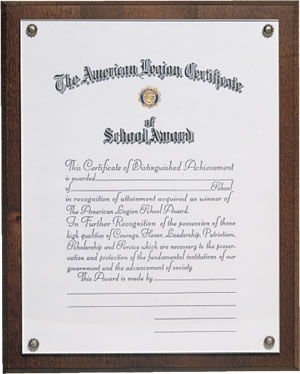 The American Legion Certificate
of
School Award
This Certificate of Distinguished Achievement
is awarded
of School,
in recognition of attainment acquired as winner of
The American Legion School Award.
In Further Recognition of the possession of those
high qualities of Courage, Honor, Leadership, Patriotism,
Scholarship and Service which are necessary to the preser-
vation and protection of the fundamental institutions of our
government and the advancement of society
This Award is made by